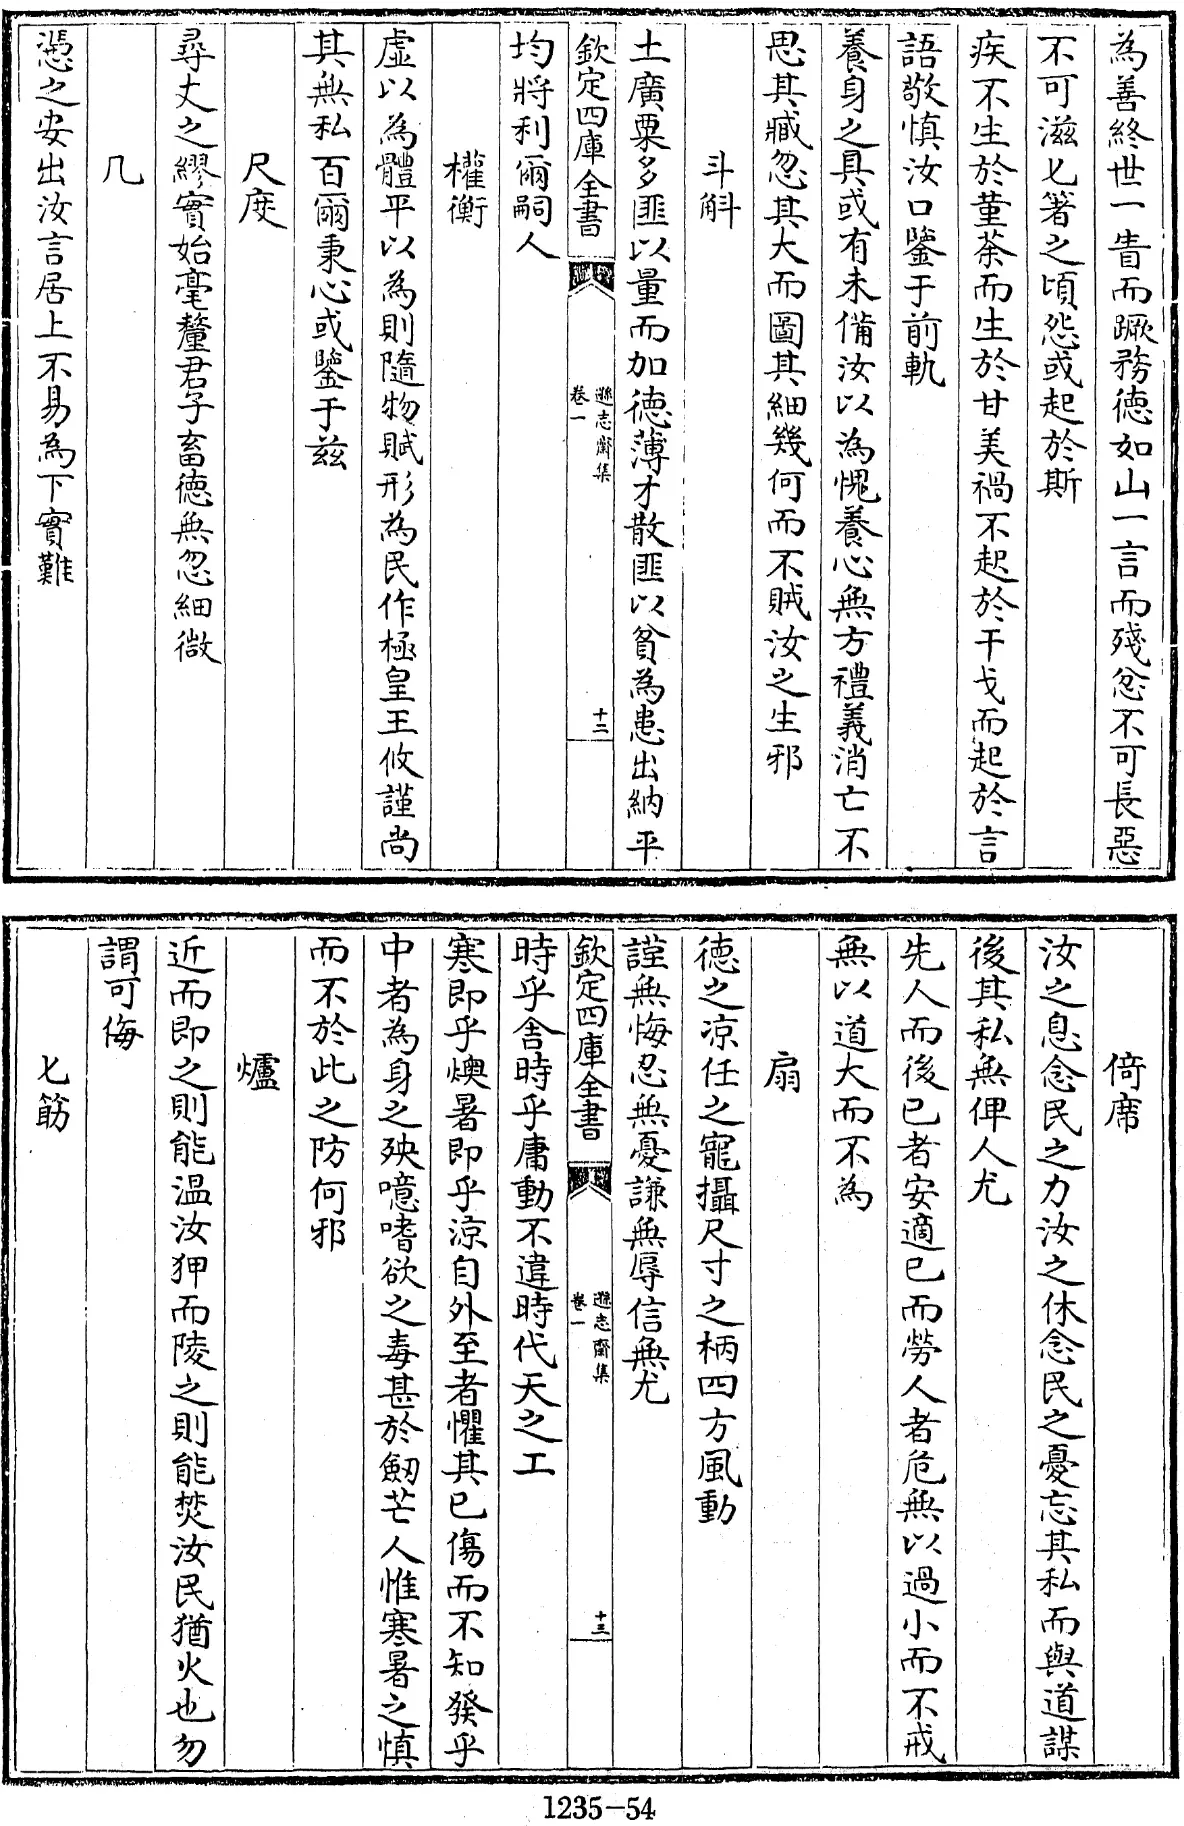 為善終世一眚而蹶務德如山一言而殘忿不可長惡
不可滋匕箸之頃怨或起於斯
疾不生於堇荼而生於甘美禍不起於干戈而起於言
語敬慎汝口鑒于前軌
養身之具或有未備汝以為愧養心無方禮義消亡不
思其臧忽其大而圖其細幾何而不賊汝之生邪
斗斛
土廣粟多匪以量而加德薄才散匪以貧為患出納平
欽定四庫全書
遜志齋集
卷一
十二
均將利爾嗣人
權衡
虛以為體平以為則隨物賦形為民作極皇王攸謹尚
其無私百爾秉心或鑒于茲
尺度
尋丈之繆實始毫釐君子畜德無忽細微
几
憑之安出汝言居上不易為下實難
倚席
汝之息念民之力汝之休念民之憂忘其私而與道謀
後其私無俾人尤
先人而後已者安適已而勞人者危無以過小而不戒
無以道大而不為
扇
德之凉任之寵攝尺寸之柄四方風動
謹無悔忍無憂謙無辱信無尤
欽定四庫全書
遜志齋集
卷一
十三
時乎舍時乎庸動不違時代天之工
寒即乎燠暑即乎涼自外至者懼其已傷而不知發乎
中者為身之殃噫嗜欲之毒甚於劒芒人惟寒暑之慎
而不於此之防何邪
爐
近而即之則能温汝狎而陵之則能焚汝民猶火也勿
謂可侮
匕筯
1235-54